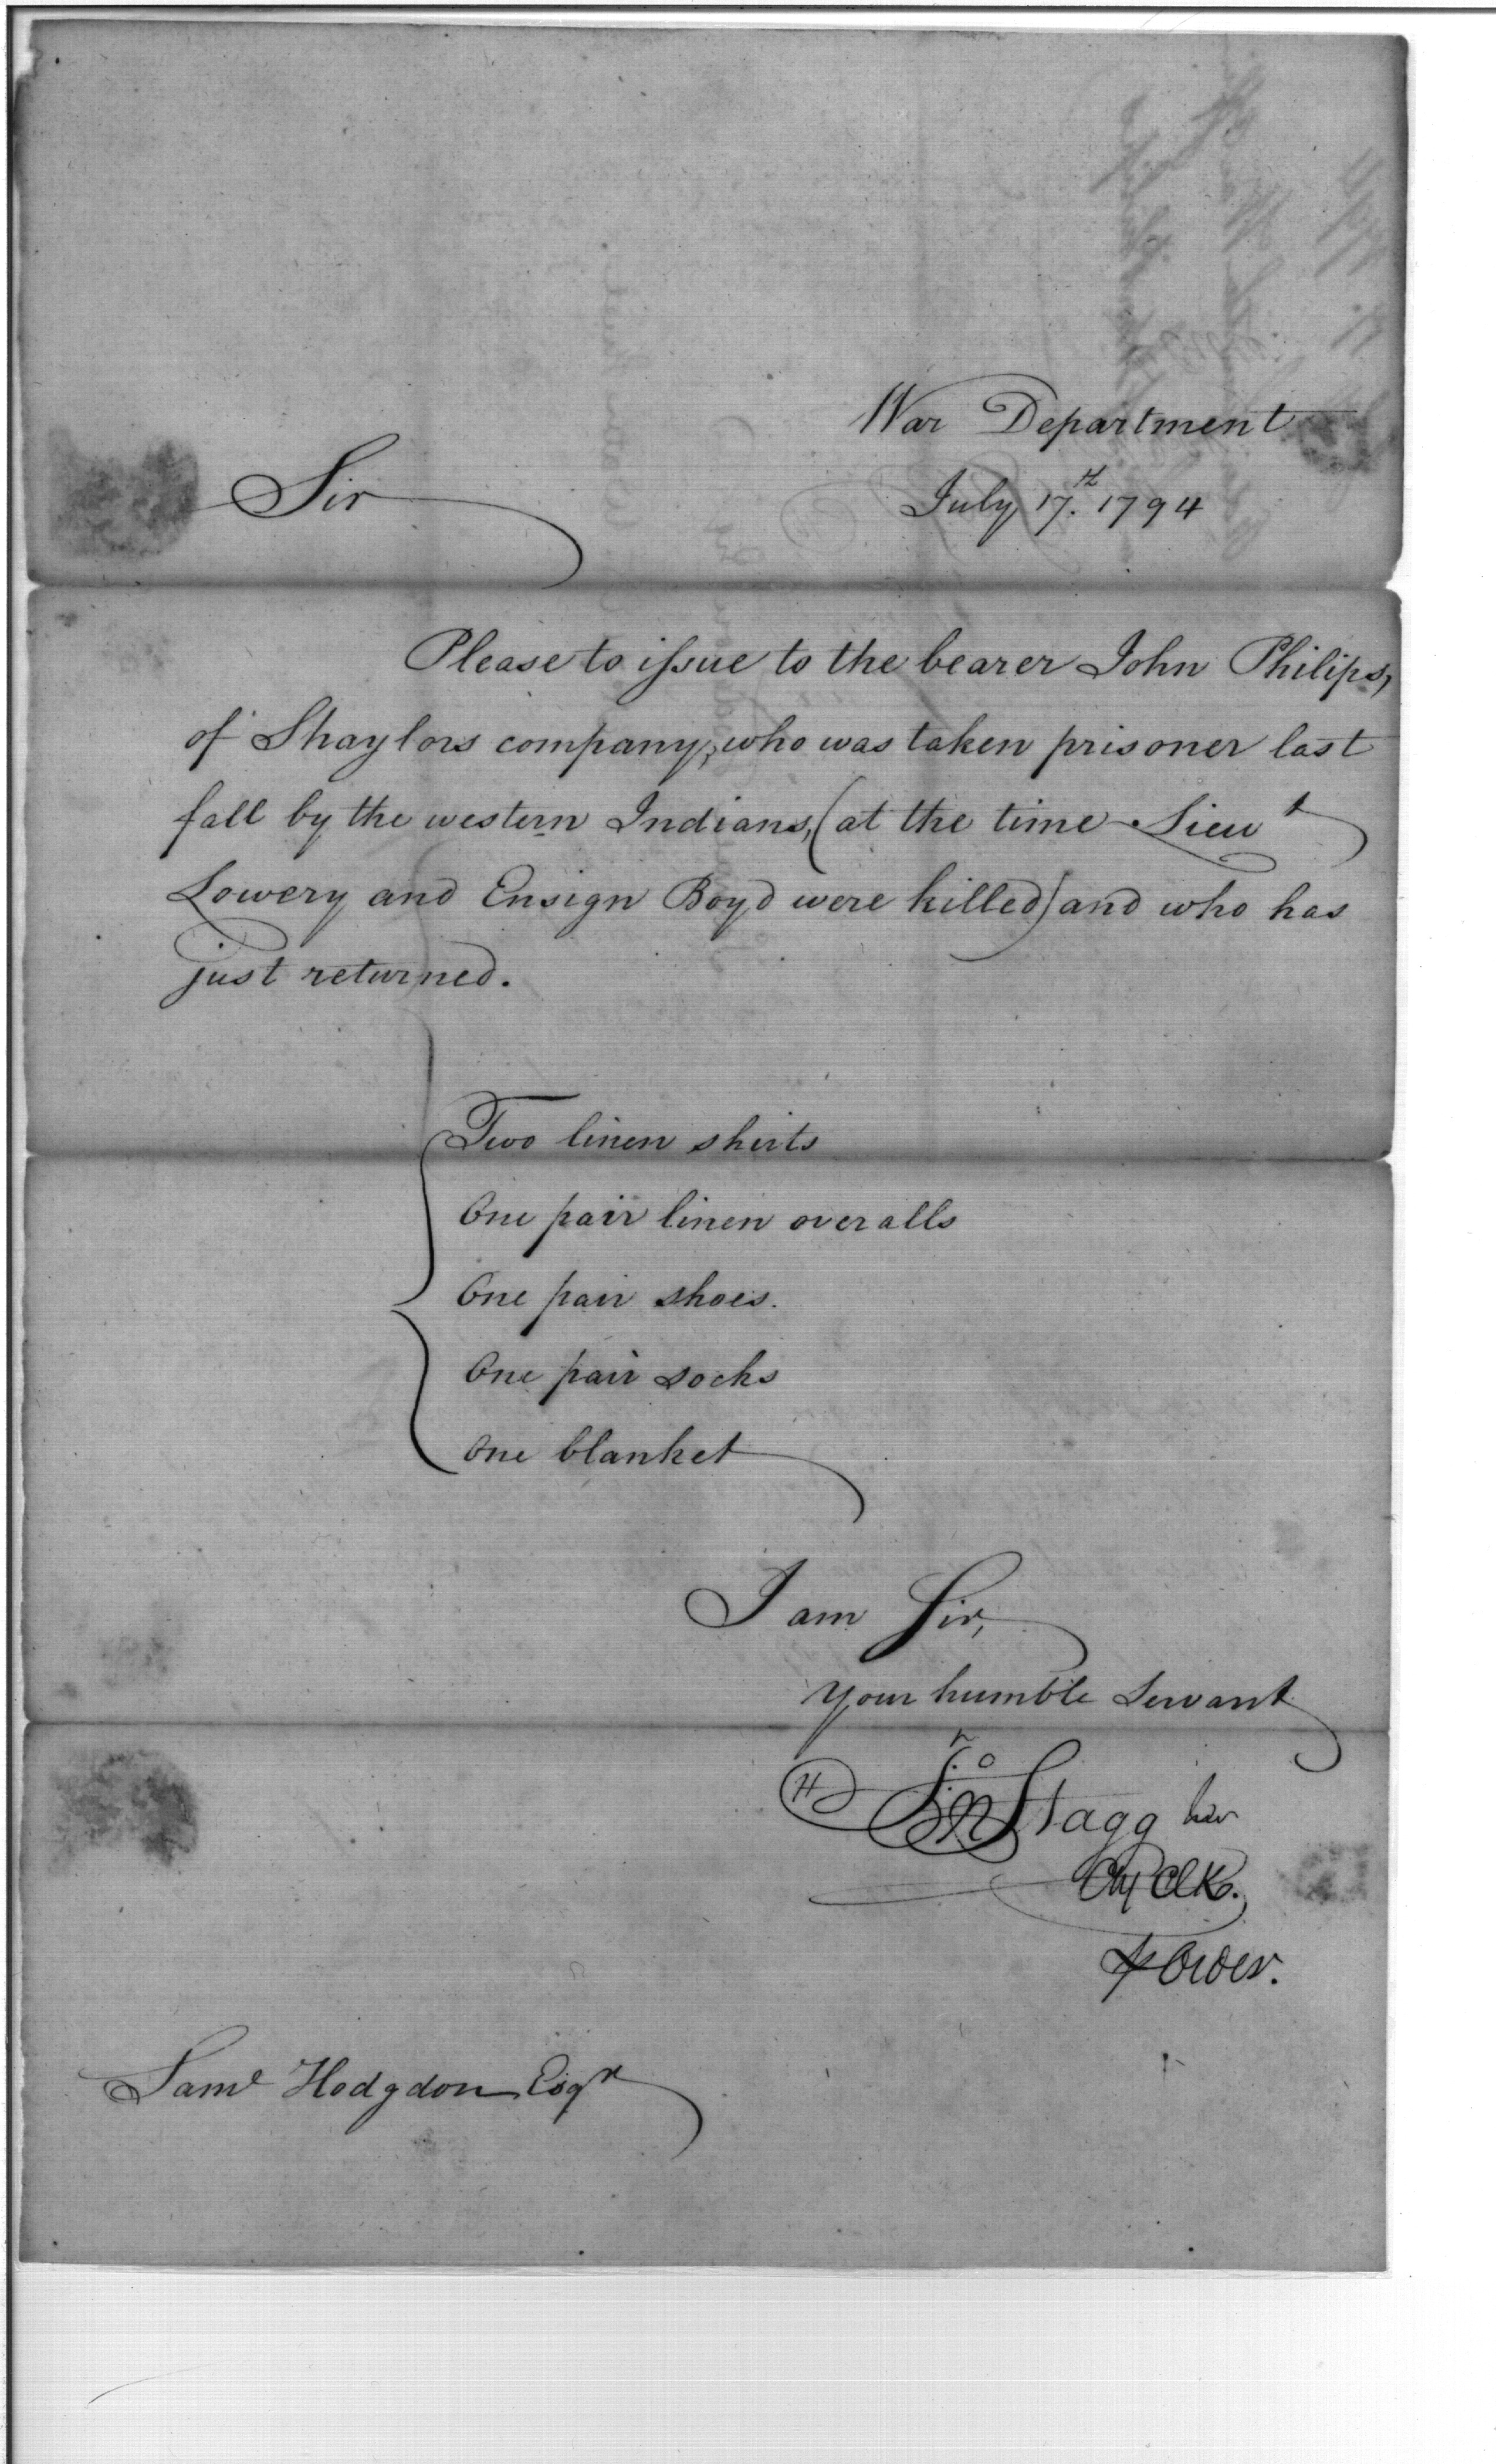 War Department
Sir
July 17th. 1794
Please to issue to the bearer John Philips,
of Shaylors company, who was taken prisoner last
fall by the western Indians, (at the time Lieut
Lowery and Ensign Boyd were killed) and who has
just returned.
Two linen shirts
One pair linen overalls
One pair shoes.
One pair socks
One blanket
I am Sir,
your humble servant
Jno Stagg Jur
Ch Clk.
Saml Hodgdon Esqr